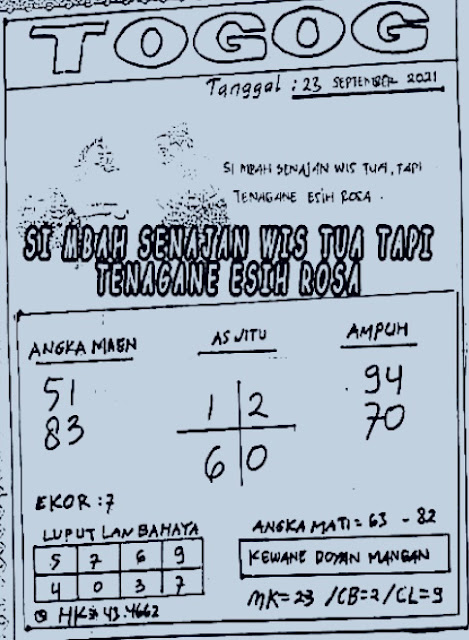 TOGOG
Tanggal : 23 SEPTEMBER 2021
SI MBAH SENAJAN WIS TUA, TAPI
TENAGANE ESIH ROSA .
SI MBAH SENAJAN WIS TUA TAPI
TENAGANE ESIH ROSA
ANGKA MAEN
51
83
AS JITU
1 2
6 0
AMPUH
94
70
EKOR : 7
LUPUT LAN BAHAYA
5 7 6 9
4 0 3 7
HK 43.4662
ANGKA MATI = 63 - 82
KEWANE DOYAN MANGAN
MK= 23 /CB=2/CL=9